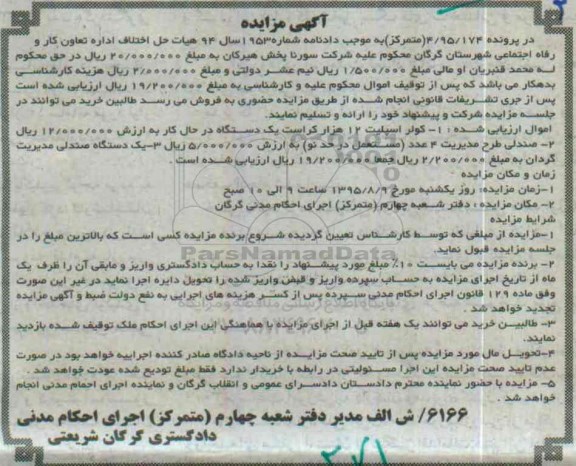 آگهی مزایده
در پرونده ۴/۹۵/۱۷۴(متمرکز)به موجب دادنامه شماره۱۹۵۳سال ۹۴ هیات حل اختلاف اداره تعاون کار و
رفاه اجتماعی شهرستان گرگان محکوم علیه شرکت سورنا پخش هیرکان به مبلغ ۲۰/۰۰۰/۰۰۰ ریال در حق محکوم
له محمد قنبریان او مالی مبلغ ۱/۵۰۰/۰۰۰ ریال نیم عشر دولتی و مبلغ ۲/۰۰۰/۰۰۰ ریال هزینه کارشناسی
بدهکار می باشد که پس از توقیف اموال محکوم علیه و کارشناسی به مبلغ ۱۹/۲۰۰/۰۰۰ ریال ارزیابی شده است
پس از جری تشریفات قانونی انجام شده از طریق مزایده حضوری به فروش می رسد طالبین خرید می توانند در
جلسه مزایده شرکت و پیشنهاد خود را ارائه و تسلیم نمایند.
اموال ارزیابی شده :۱- کولر اسپلیت ۱۲ هزار کراست یک دستگاه در حال کار به ارزش ۱۲/۰۰۰/۰۰۰ ریال
۲- صندلی طرح مدیریت ۴ عدد (مستعمل در حد نو) به ارزش ۵/۰۰۰/۰۰۰ ریال ۳-یک دستگاه صندلی مدیریت
گردان به مبلغ ۲/۲۰۰/۰۰۰ ریال جمعا ۱۹/۲۰۰/۰۰۰ ریال ارزیابی شده است .
زمان و مکان مزایده
۱-زمان مزایده: روز یکشنبه مورخ ۱۳۹۵/۸/۹ ساعت ۹ الی ۱۰ صبح
۲- مکان مزایده : دفتر شعبه چهارم (متمرکز) اجرای احکام مدنی گرگان
شرایط مزایده
۱-مزایده از مبلغی که توسط کارشناس تعیین گردیده شروع برنده مزایده کسی است که بالاترین مبلغ را در
جلسه مزایده قبول نماید.
ParsNamadData
۲- برنده مزایده می بایست ۱۰٪ مبلغ مورد پیشنهاد را نقدا به حساب دادگستری واریز و مابقی آن را ظرف یک
ماه از تاریخ اجرای مزایده به حساب سپرده واریز و قبض واریز شده را تحویل دایره اجرا نماید در غیر این صورت
وفق ماده ۱۲۹ قانون اجرای احکام مدنی سپرده پس از کسر هزینه های اجرایی به نفع دولت ضبط و آگهی مزایده
تجدید خواهد شد .
۳- طالبین خرید می توانند یک هفته قبل از اجرای مزایده با هماهنگی این اجرای احکام ملک توقیف شده بازدید
نمایند.
۴-تحویل مال مورد مزایده پس از تایید صحت مزایده از ناحیه دادگاه صادر کننده اجراییه خواهد بود در صورت
عدم تایید صحت مزایده این اجرا مسئولیتی در رابطه با خریدار ندارد فقط مبلغ تودیع شده عودت خواهد شد .
۵- مزایده با حضور نماینده محترم دادستان دادسرای عمومی و انقلاب گرگان و نماینده اجرای احمام مدنی انجام
خواهد شد .
۶۱۶۶/ ش الف مدیر دفتر شعبه چهارم (متمرکز) اجرای احکام مدنی
دادگستری گرگان شریعتی
۳۷۱